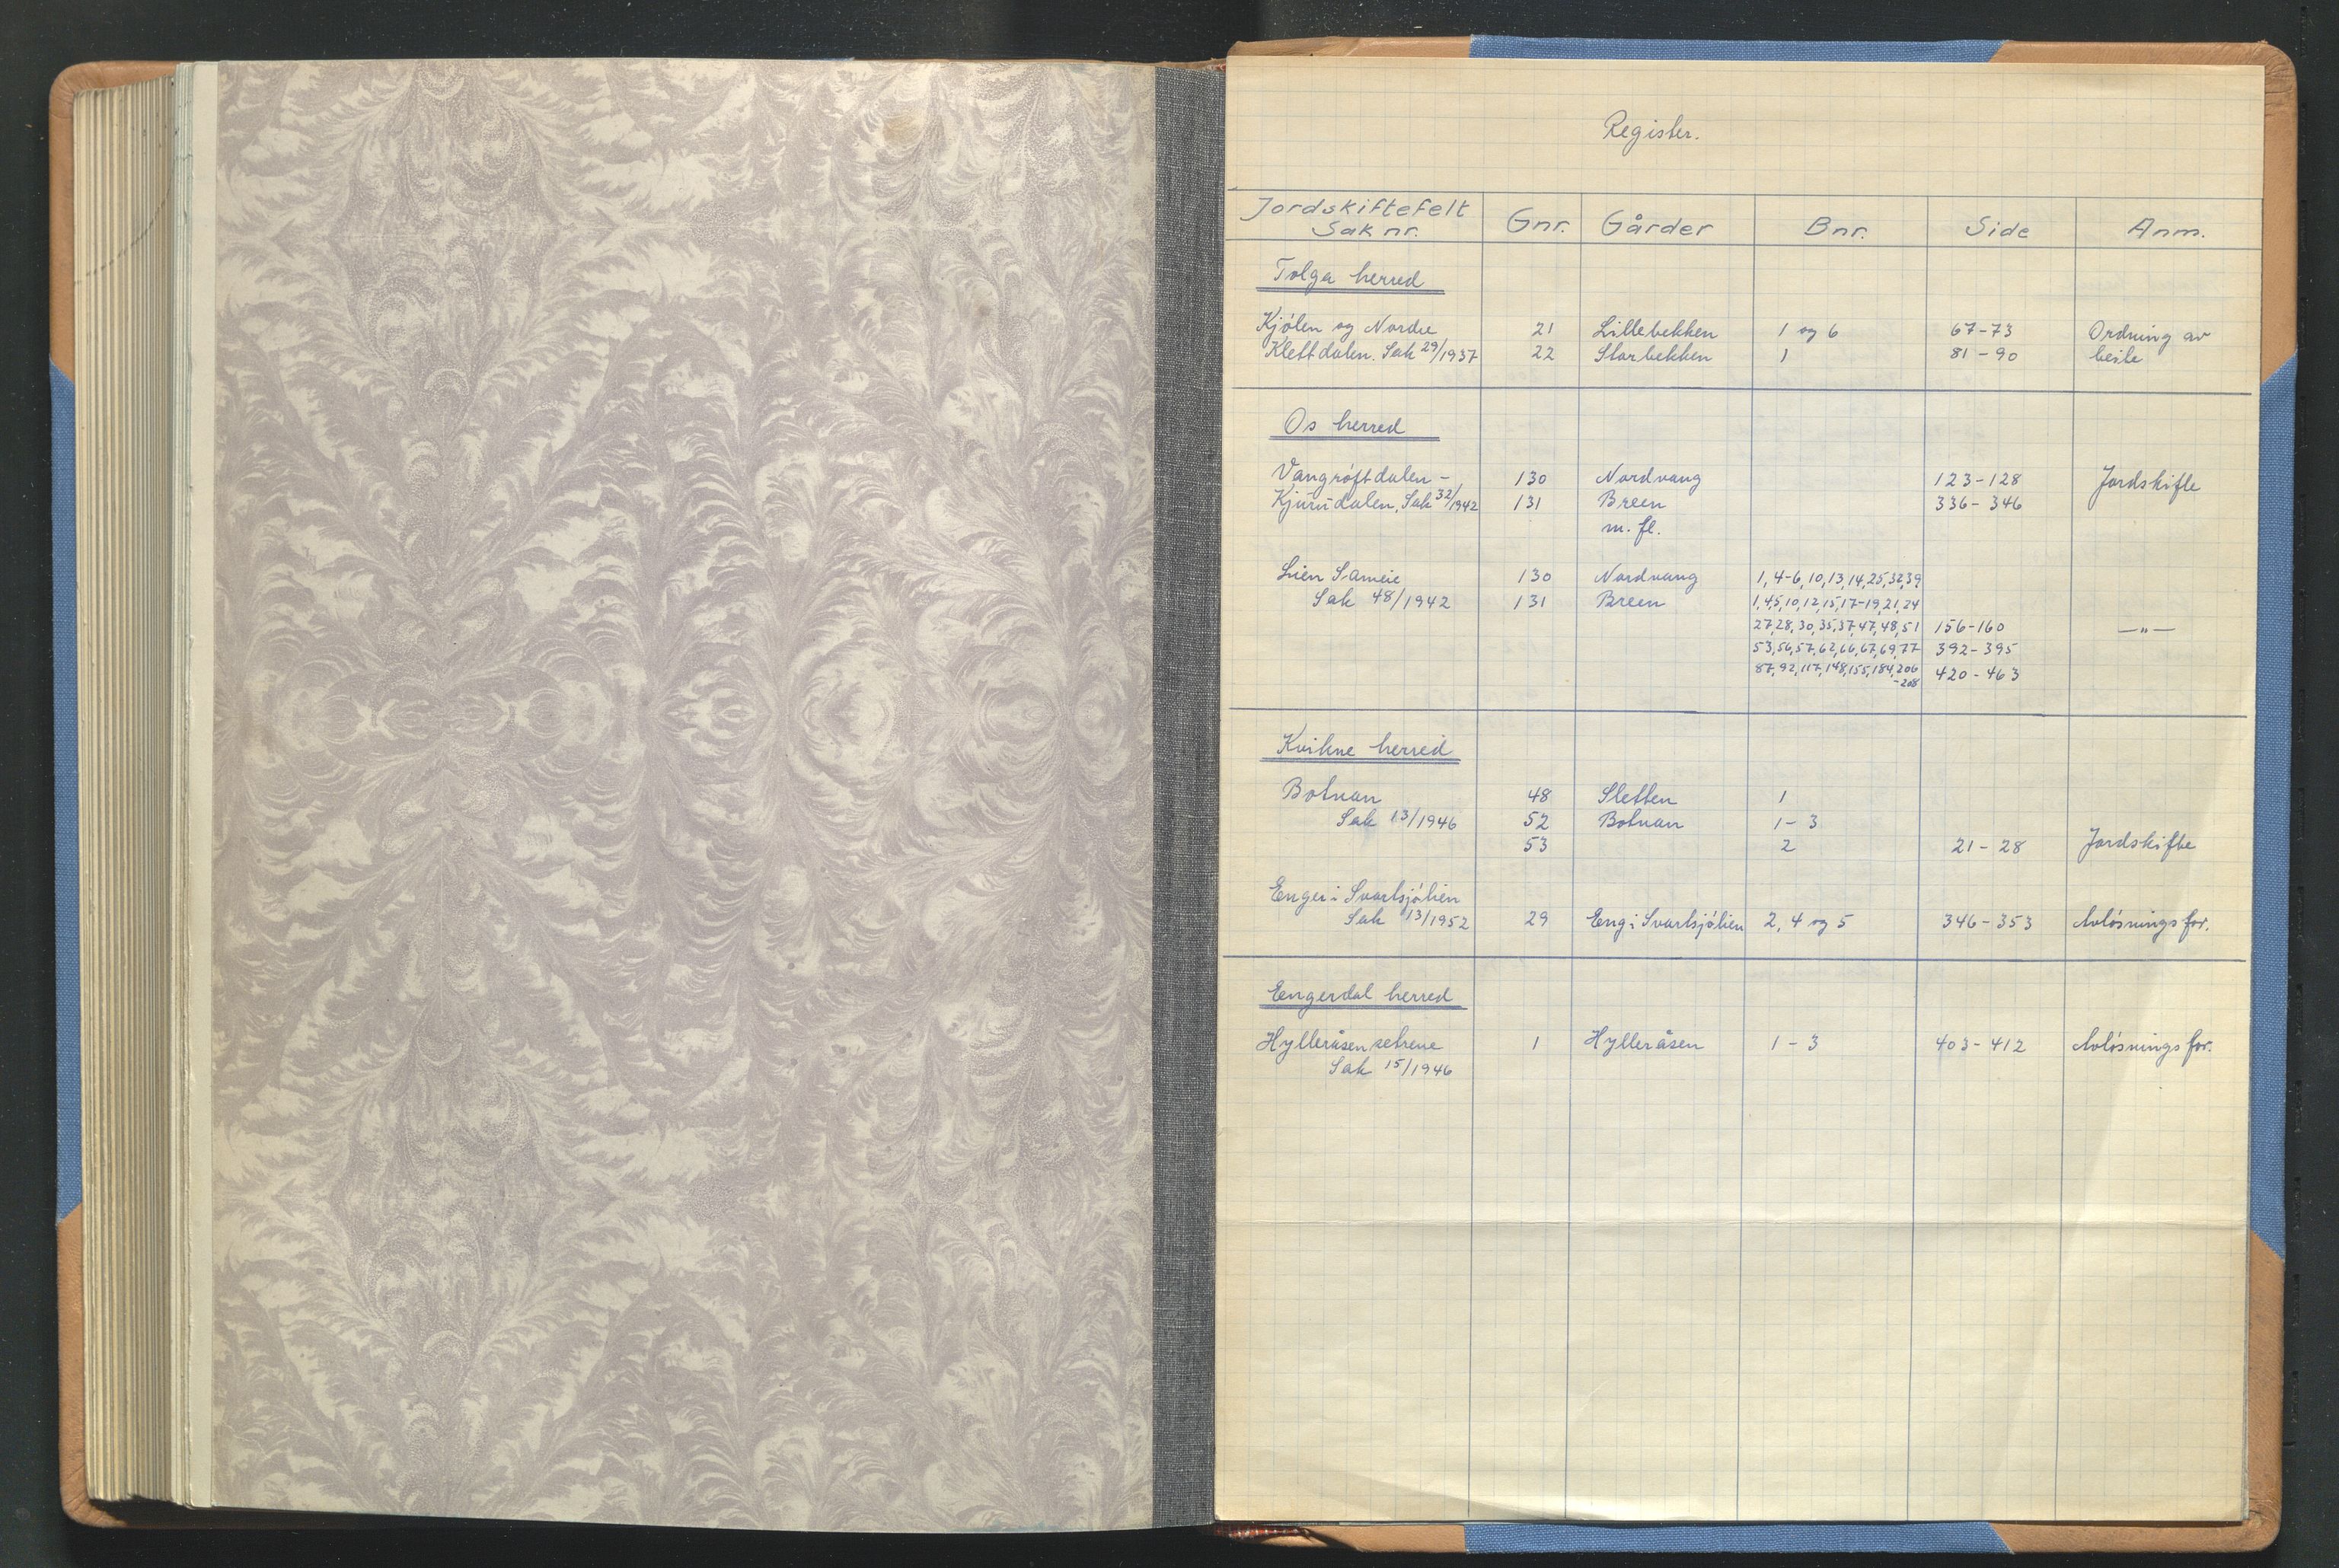 Register.
Jordskiftefelt Sak nr. Gnr. Gårder Bnr. Side Anm.
Tolga herred
Kjølen og Nordre 21 Lillebekken 1 og 6 67-73 Ordning av
Klettdalen. Sak 29/1937 22 Storbekken 1 81-90 beite
Os herred
Vangrøftdalen - 130 Nordvang 123-128 Jordskifte
Kjurudalen, Sak 32/1942 131 Breen 336-346
m. fl.
Lien Sameie 130 Nordvang 1, 4-6, 10, 13, 14, 25, 32, 39
Sak 48/1942 131 Breen 1, 4, 5, 10, 12, 15, 17-19, 21, 24
27, 28, 30, 35, 37, 47, 48, 51 156-160 —"—
53, 56, 57, 62, 66, 67, 69, 77 392-395
87, 92, 117, 148, 155, 184, 206 420-463
-208
Kvikne herred
Botnan 48 Sletten 1
Sak 13/1946 52 Botnan 1-3
53 2 21-28 Jordskifte
Enger i Svartsjølien
Sak 13/1952 29 Eng i Svartsjølien 2, 4 og 5 346-353 Avløsningsfor.
Engerdal herred
Hylleråsen setrene 1 Hylleråsen 1-3 403-412 Avløsningsfor.
Sak 15/1946